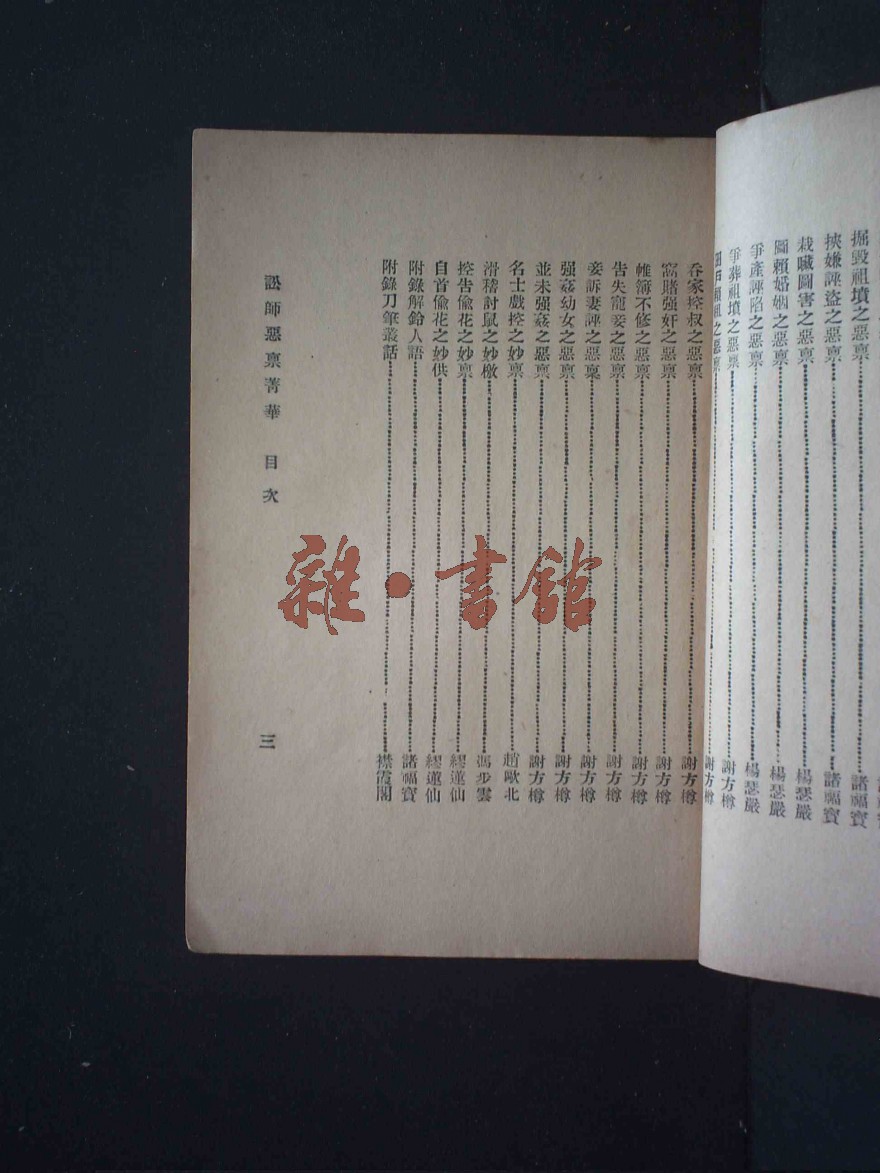 掘毀祖墳之惡禀 諸福寶
挾嫌誣盜之惡禀 諸福寶
栽贓圖害之惡禀 楊瑟嚴
圖賴婚姻之惡禀 楊瑟嚴
爭產誣陷之惡禀 楊瑟嚴
爭葬祖墳之惡禀 謝方樽
賴租之惡禀 謝方樽
吞家控叔之惡禀 謝方樽
窩賭强奸之惡禀 謝方樽
帷簿不修之惡禀 謝方樽
告失寵妾之惡禀 謝方樽
妾訴妻誣之惡稟 謝方樽
强姦幼女之惡禀 謝方樽
並未强姦之惡禀 謝方樽
名士戲控之妙禀 趙歐北
滑稽討鼠之妙檄 馮步雲
控告偷花之妙禀 繆蓮仙
自首偷花之妙供 繆蓮仙
附錄解鈴人語 諸福寶
附錄刀筆叢話 襟霞閣
訟師惡禀菁華 目次 三
雜·書館